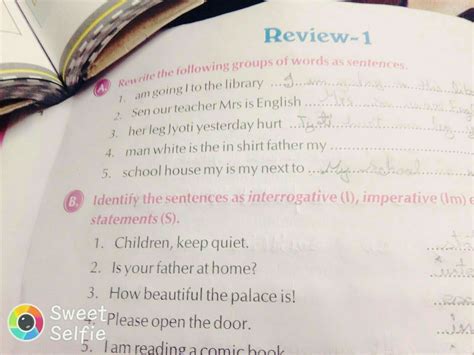 Review-1
A. Rewrite the following groups of words as sentences.
1. am going I to the library ....I am going
2. Sen our teacher Mrs is English ....Mrs
3. her leg Jyoti yesterday hurt
4. man white is the in shirt father my
5. school house my is my next to ....My school
B. Identify the sentences as interrogative (I), imperative (Im) e
statements (S).
1. Children, keep quiet.
2. Is your father at home?
3. How beautiful the palace is!
4. Please open the door.
5. I am reading a comic book.
Sweet
Selfie